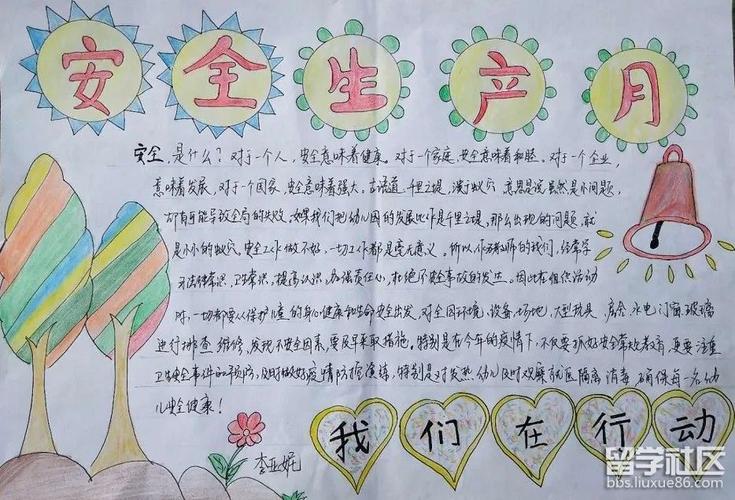 安全生产月
安全,是什么?对于一个人,安全意味着健康。对于一个家庭,安全意味着和睦。对于一个企业,
意味着发展,对于一个国家,安全意味着强大。古语道:千里之堤,溃于蚁穴,意思是说虽然是小问题,
却有可能导致全局的失败,如果我们把幼儿园的发展比作是千里之堤,那么出现的问题,就
是小小的蚁穴,安全工作做不好,一切工作都是毫无意义。所以作为教师的我们,经常学
习法律常识,卫生常识,提高认识,加强责任心,杜绝不安全事故的发生。因此在组织活动
时,一切都要从保护儿童的身心健康和生命安全出发,对全园环境,设备,场地,大型玩具,房舍,水电门窗,玻璃
进行排查,维修,发现不安全因素,要及早采取措施。特别是在今年的疫情下,不仅要抓好安全常规教育,更要注重
卫生安全事件的预防,及时做好疫情防控演练,特别是对发热幼儿及时观察就医隔离消毒,确保每一名幼
儿安全健康!
李亚妮
我们在行动
留学社区
bbs.liuxue86.com